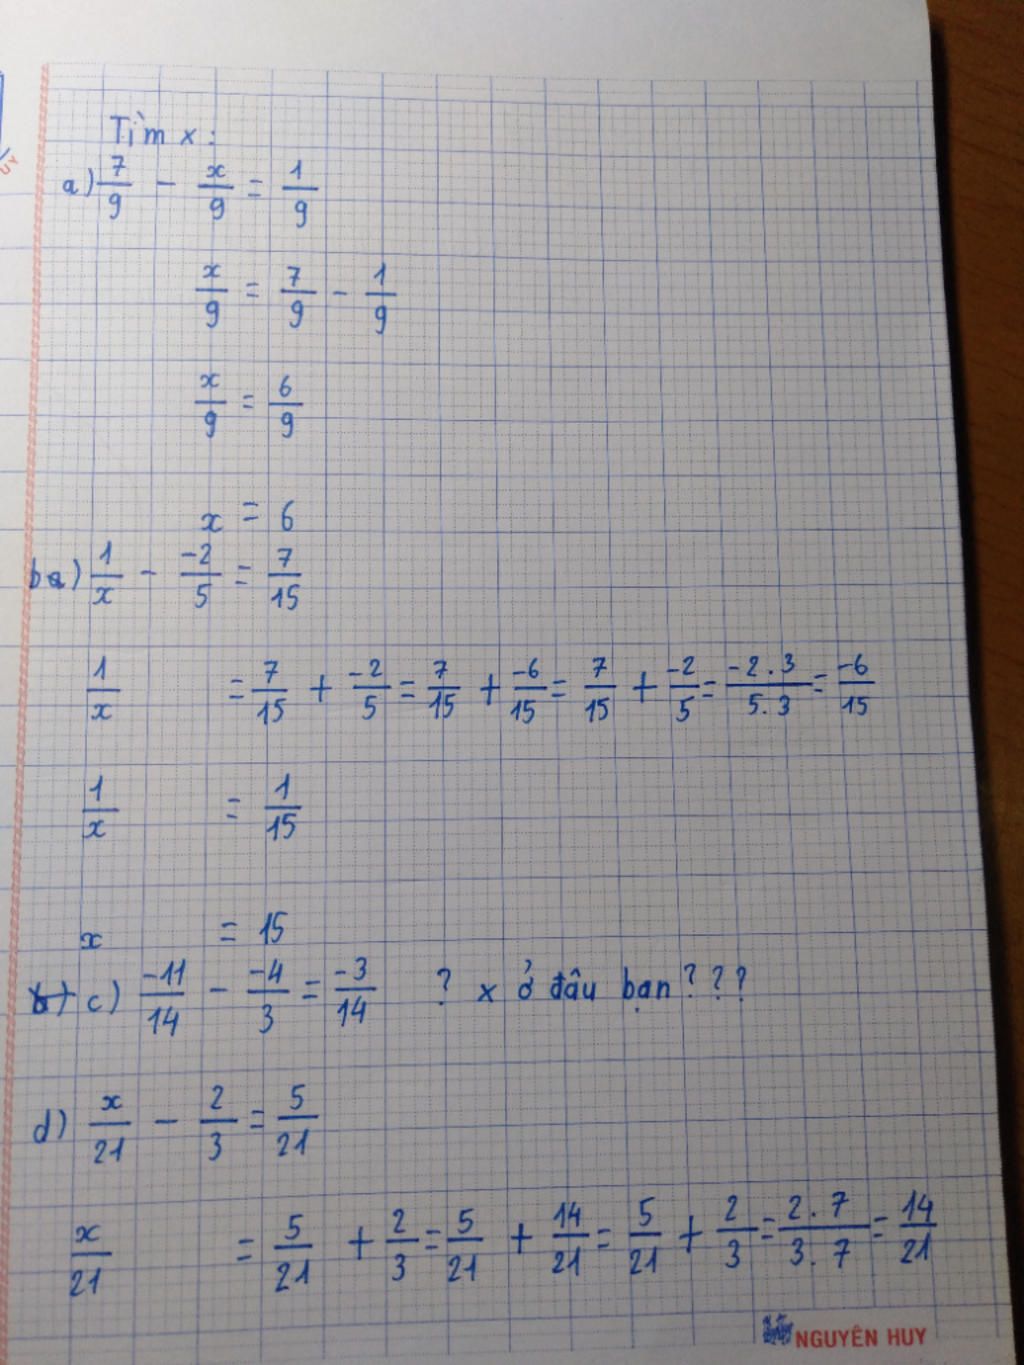 Tìm x:
a) 7/9 - x/9 = 1/9
x/9 = 7/9 - 1/9
x/9 = 6/9
x = 6
b) 1/x - -2/5 = 7/15
1/x = 7/15 + -2/5 = 7/15 + -6/15 = 7/15 + -2/5 = -2.3/5.3 = -6/15
1/x = 1/15
x = 15
c) -11/14 - -4/3 = -3/14 ? x ở đâu bạn???
d) x/21 - 2/3 = 5/21
x/21 = 5/21 + 2/3 = 5/21 + 14/21 = 5/21 + 2/3 = 2.7/3.7 = 14/21
NGUYÊN HUY